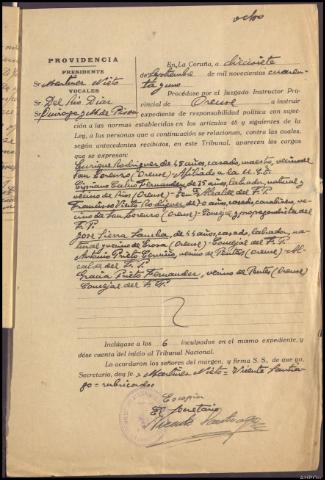 ocho
PROVIDENCIA
PRESIDENTE
Sr. Martínez Nieto
VOCALES
Sr. Del Río Díaz
Sr. Quiroga y M. de Pisón
En La Coruña, a diecisiete
de septiembre de mil novecientos cuaren-
ta y uno
Procédase por el Juzgado Instructor Pro-
vincial de Orense a instruir
expediente de responsabilidad política con sujec-
ción a las normas establecidas en los artículos 46 y siguientes de la
Ley, a las personas que a continuación se relacionan, contra las cuales,
según antecedentes recibidos, en este Tribunal, aparecen los cargos
que se expresan:
Enrique Rodríguez de 45 años, casado, maestro, vecino de
San Lorenzo (Orense) Afiliado a la U.G.T.
Cipriano Calvo Fernández, de 35 años, labrador, natural y
vecino de Pino (Orense) Alcalde del F.P.
Francisco Prieto Rodríguez, de 70 años, casado, ve-
cino de San Lorenzo (Orense) Concejal y propagandista del
F.P.
José Sierra de 44 años, casado, labrador, na-
tural y vecino de (Orense) Concejal del F.P.
Antonio Prieto vecino de Pentes (Orense) Al-
calde del F.P.
Gracia Prieto Fernández, vecino de Pentes (Orense)
Concejal del F.P.
Indáguese a los 6 inculpados en el mismo expediente, y
dése cuenta del inicio al Tribunal Nacional.
Lo acordaron los señores del margen, y firma S. S., de que yo,
Secretario, doy fe = Martínez Nieto = Vicente Santia-
go = rubricados
Es copia
El Secretario
Vicente Santiago